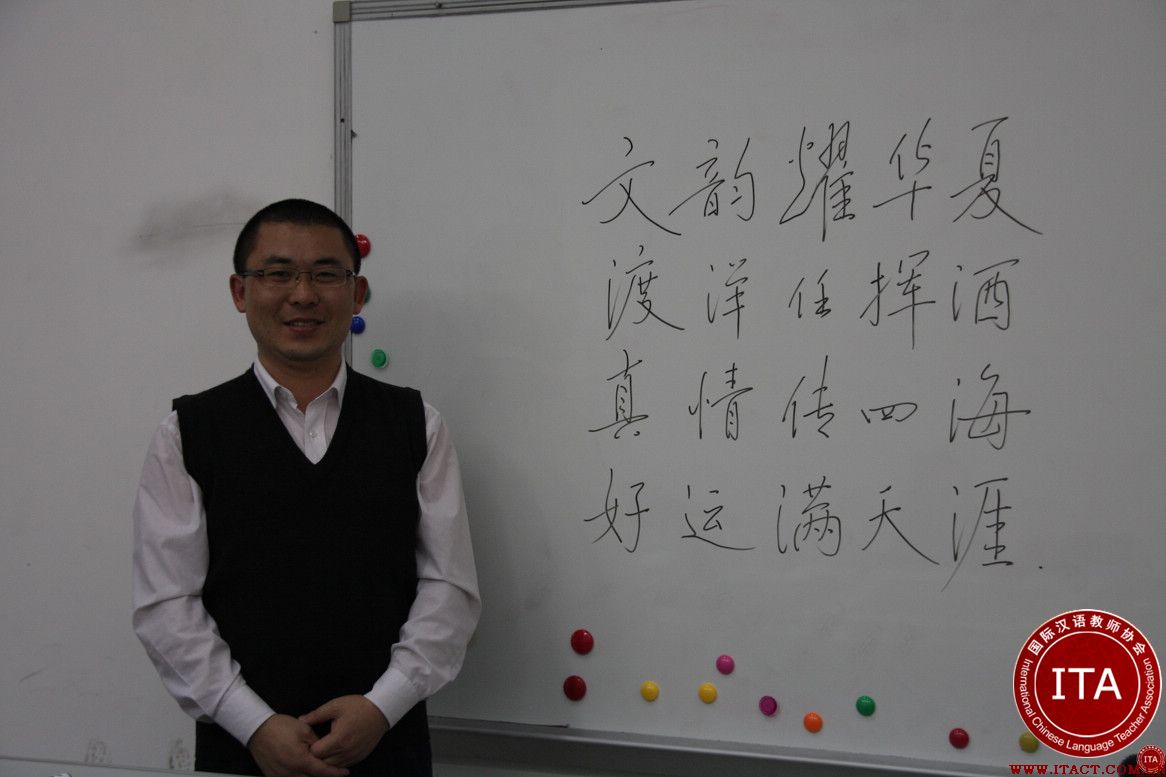 文韵耀华夏
渡洋任挥洒
真情传四海
好运满天涯.
国际汉语教师协会
ITA
International Chinese Language Teacher Association
WWW.ITACT.COM
ITA